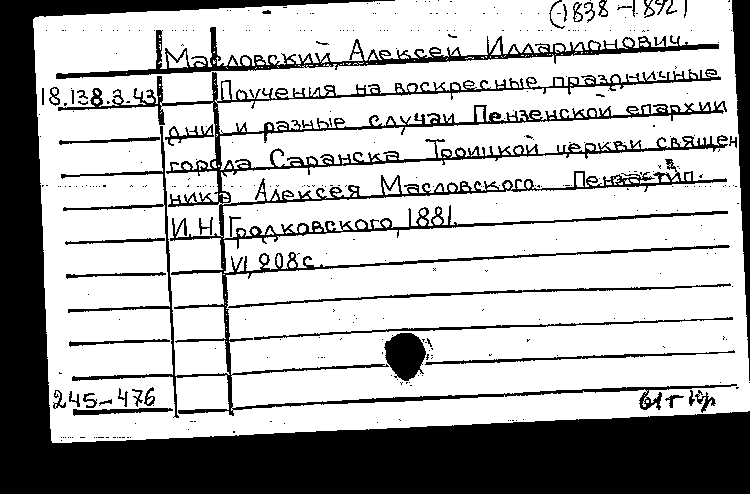 (1838-1892)
Масловский, Алексей Илларионович.
18.138.3.43 Поучения на воскресные, праздничные
дни и разные случаи Пензенской епархии
города Саранска Троицкой церкви священ
ника Алексея Масловского. Пенза, тип.
И.Н. Градковского, 1881.
VI, 208 с.
245-476